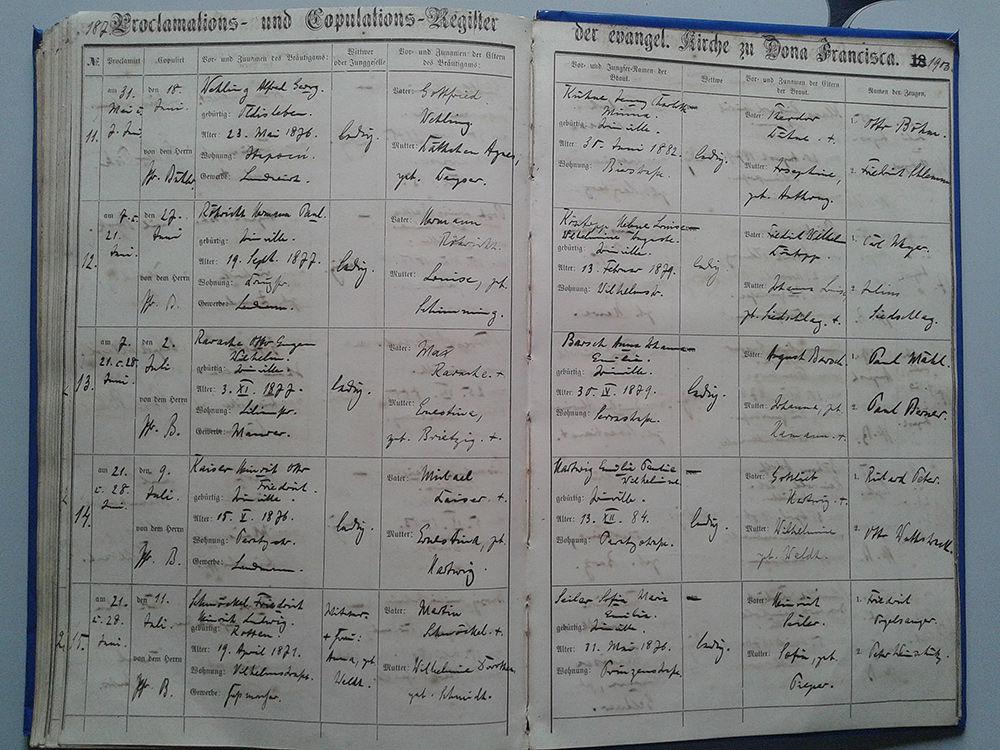 187 Proclamations- und Copulations-Register
№
Proclamirt
Copulirt
Vor- und Zunamen des Bräutigams:
Wittwer
oder Junggeselle
Vor- und Zunamen der Eltern
des Bräutigams:
11.
am 31.
Mai u.
7. Juni
den 18.
Juni.
von dem Herrn
Pfr. Bühler
Wehling Alfred Georg.
gebürtig:
Alter: 23. Mai 1876.
Wohnung:
Gewerbe: Landwirth.
ledig.
Vater: Gottfried
Wehling
Mutter: Käthchen Agnes,
geb. Kayser.
12.
am 7. u.
21.
Juni.
den 27.
Juni
von dem Herrn
Pfr. B.
Röhricht Hermann Paul.
gebürtig: Joinville.
Alter: 19. Sept. 1877.
Wohnung:
Gewerbe: Landmann.
ledig.
Vater: Hermann
Röhricht.
Mutter: Louise, geb.
Schimming.
13.
am 7.
21. u. 28.
Juni.
den 2.
Juli
von dem Herrn
Pfr. B.
Raasche Otto Eugen
Wilhelm.
gebürtig: Joinville.
Alter: 3. XI. 1877
Wohnung:
Gewerbe: Maurer.
ledig.
Vater: Max
Raasche. +
Mutter: Ernestine,
geb. Brietzig. +.
14.
am 21.
u. 28.
Juni.
den 9.
Juli.
von dem Herrn
Pfr. B.
Kaiser Heinrich Otto
Friedrich.
gebürtig: Joinville.
Alter: 15. V. 1876.
Wohnung:
Gewerbe: Landmann.
ledig.
Vater: Michael
Kaiser. +
Mutter: Ernestine, geb.
Hartwig.
15.
am 21.
u. 28.
Juni.
den 11.
Juli.
von dem Herrn
Pfr. B.
Schmöckel Friedrich
Heinrich Ludwig.
gebürtig:
Alter: 19. April 1871.
Wohnung: Wilhelmstrasse.
Gewerbe:
Wittwer.
+ Frau:
Anna, geb.
Weldt.
Vater: Martin
Schmöckel. +
Mutter: Wilhelmine Dorothea
geb. Schmidt.
der evangel. Kirche zu Dona Francisca. 1903.
Vor- und Jungfer-Namen der
Braut.
Wittwe
Vor- und Zunamen der Eltern
der Braut.
Namen der Zeugen.
Kühne Jenny Charlotte
Minna.
gebürtig: Joinville.
Alter: 30. Juni 1882.
Wohnung:
ledig.
Vater: Theodor
Kühne. +.
Mutter: Josephine,
geb. Anthony.
1. Otto Böhm.
2. Friedrich
Helene Louise
Wilhelmine Auguste.
gebürtig: Joinville.
Alter: 13. Februar 1879.
Wohnung: Wilhelmstr.
ledig
Vater: Friedrich Wilhelm
Mutter: Johanna Louise
geb. Liedschlag. +.
1. Carl
2. Julius
Liedschlag.
Barsch Anna Johanna
Emilie.
gebürtig: Joinville.
Alter: 30. IV. 1879.
Wohnung: Serrastrasse.
ledig.
August Barsch
Mutter: Johanna, geb.
Ramann. +.
1. Paul Mahl.
2. Paul
Hartwig Emilie Pauline
Wilhelmine
gebürtig: Joinville.
Alter: 13. XII. 84.
Wohnung:
ledig.
Vater: Gottlieb
Hartwig. +
Mutter: Wilhelmine
geb. Weldt.
1. Richard
2. Otto
Seiler Sofie Marie
Emilie.
gebürtig: Joinville.
Alter: 11. Mai 1876.
Wohnung: Prinzenstrasse.
ledig.
Vater: Heinrich
Seiler.
Mutter: Sofie, geb.
Pieper.
1. Friedrich
Vogelsanger.
2.